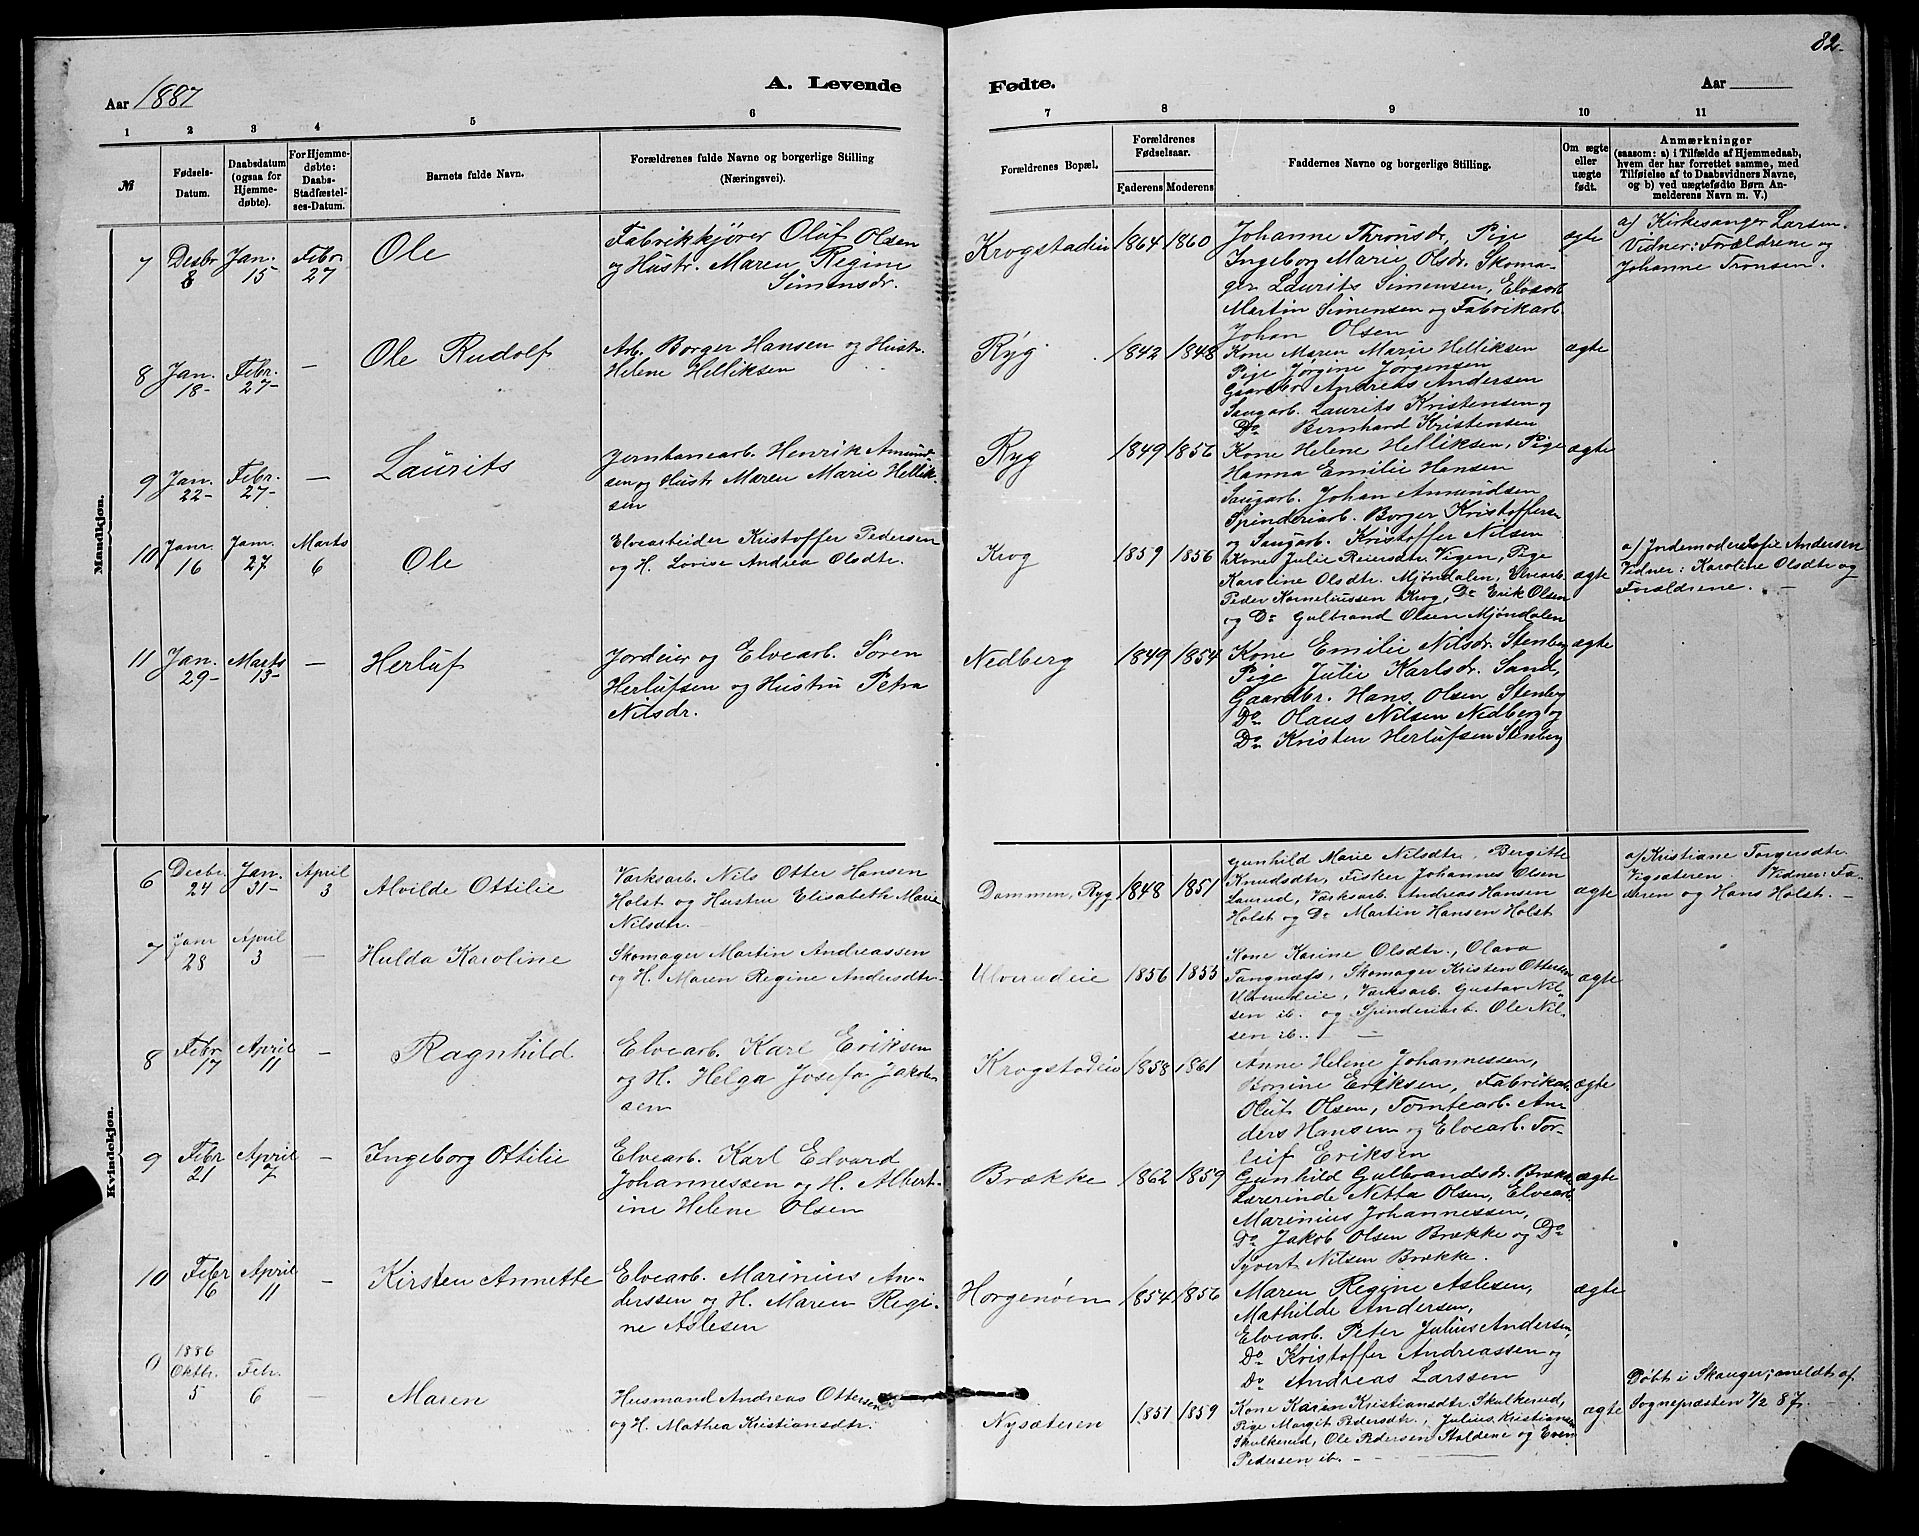 82.
Aar 1887
A. Levende
Fødte.
Aar
1 2 3 4 5 6
7 8 9 10 11
№
Fødsels-Datum.
Daabsdatum (ogsaa for Hjemme-døbte).
For Hjemme-døbte: Daabs-Stadfæstel-ses-Datum.
Barnets fulde Navn.
Forældrenes fulde Navne og borgerlige Stilling
(Næringsvei).
Forældrenes Bopæl.
Forældrenes Fødselsaar.
Faderens Moderens
Faddernes Navne og borgerlige Stilling.
Om ægte eller uægte født.
Anmærkninger
(saasom: a) i Tilfælde af Hjemmedaab,
hvem der har forrettet samme, med
Tilføielse af to Daabsvidners Navne,
og b) ved uægtefødte Børn An-
melderens Navn m. V.)
Mandkjøn.
7 Desbr 8 Jan. 15 Febr 27 Ole
Fabrikkjører Oluf Olsen
og Hustr. Maren Regine
Simensdr.
Krogstadeie 1864 1860
Johanne Thronsdr, Pige
Ingeborg Marie Olsdr. Skoma-
ger Laurits Simensen, Elvearb
Martin Simensen og Fabrikarb.
Johan Olsen
ægte
a) Kirkesanger Larsen.
Vidner: Forældrene og
Johanne Tronsen.
8 Jan. 18- Febr. 27- — Ole Rudolf
Arb. Borger Hansen og Hustr.
Helene Helliksen
Ryg. 1842 1848
Kone Maren Marie Helliksen
Pige Jørgine Jørgensen
Gaardbr. Andreas Andersen
Saugarb. Laurits Kristensen og
Do Bernhard Kristensen
ægte
9 Jan. 22- Febr. 27- — Laurits
Jerntanearb. Henrik Amund-
sen og Hustr Maren Marie Hellik-
sen
Ryg 1849 1856
Kone Helene Helliksen, Pige
Hanna Emilie Hansen
Saugarb. Johan Amundsen
Spinderiarb. Borger Kristoffersen
og Saugarb. Kristoffer Nilsen
ægte
10 Janr. 16 Janr. 27 Marts 6 Ole
Elvearbeider Kristoffer Pedersen
og H. Lovise Andrea Olsdtr.
Krog 1859 1856
Kone Julie Reiersdtr Vigen, Pige
Karoline Olsdtr. Mjøndalen, Elvearb.
Peder Korneliussen Krog, Do Erik Olsen
og Do Gulbrand Olsen Mjøndalen
ægte
a) Jordemoder Andersen
Vidner: Karoline Olsdtr og
Forældrene. —
11 Jan. 29- Marts 13- — Herluf
Jordeier og Elvearb. Søren
Herlufsen og Hustru Petra
Nilsdr.
Nedberg 1849 1854
Kone Emilie Nilsdr. Stenberg
Pige Julie Karlsdr. Sand,
Gaardbr. Hans Olsen Stenberg
Do Olaus Nilsen Nedberg og
Do Kristen Herlufsen Stenberg
ægte
Kvindekjøn.
6 Decbr. 24 Jan. 31- April 3 Alvilde Ottilie
Værksarb. Nils Otter Hansen
Holst og Hustru Elisabeth Marie
Nilsdtr.
Dammen, Ryg 1848 1851
Gunhild Marie Nilsdtr, Bergitte
Knudsdtr, Fisker Johannes Olsen
Laurud, Værksarb. Andreas Hansen
Holst og Do Martin Hansen Holst
ægte
a) Kristiane Torgersdtr.
Vigsæteren. Vidner: Fa-
deren og Hans Holst. —
7 Janr 28 April 3 — Hulda Karoline
Skomager Martin Andreassen
og H. Maren Regine Andersdtr.
Ulverudeie 1856 1855
Kone Karine Olsdtr., Olava
Tangnæs, Skomager Kristen Ottersen
Ulverudeie, Værksarb. Gustav Nil-
sen ib. og Spinderiarb. Ole Nil-
sen ib. —
ægte
8 Febr. 17 April 11 — Ragnhild
Elvearb. Karl Eriksen
og H. Helga Josefa Jakob-
sen
Krogstadeie 1858 1861
Anne Helene Johannessen,
Bonine Eriksen, Fabrikarb.
Oluf Olsen, Tomtearb. An-
ders Hansen og Elvearb. Tor-
leif Eriksen
ægte
9 Febr 21 April 7 — Ingeborg Ottilie
Elvearb. Karl Edvard
Johannessen og H. Albert-
ine Helene Olsen
Brække 1862 1859
Gunhild Gulbrandsdr. Brække
Lærerinde Nitta Olsen, Elvearb.
Marinius Johannessen,
Do Jakob Olsen Brække og Do
Syvert Nilsen Brække.
ægte
10 Febr 6 April 11 — Kirsten Annette
Elvearb. Marinius An-
derssen og H. Maren Regi-
ne Aslesen
Horgenøien 1854 1856
Maren Regine Aslesen,
Mathilde Andersen,
Elvearb. Peter Julius Andersen,
Do Kristoffer Andreassen og
Do Andreas Larssen
ægte
0 1886 Oktbr. 5 Febr. 6 — Maren
Husmand Andreas Ottersen
og H. Mathea Kristiansdtr.
Nysæteren 1851 1859
Kone Karen Kristiansdtr Skulkerud,
Pige Margit Pedersdtr., Julius Kristiansen
Skulkerud, Ole Pedersen Stoldene og Even
Pedersen ib. —
ægte
Døbt i Skauger, meldt af
Sognepræsten 7/2 87. —